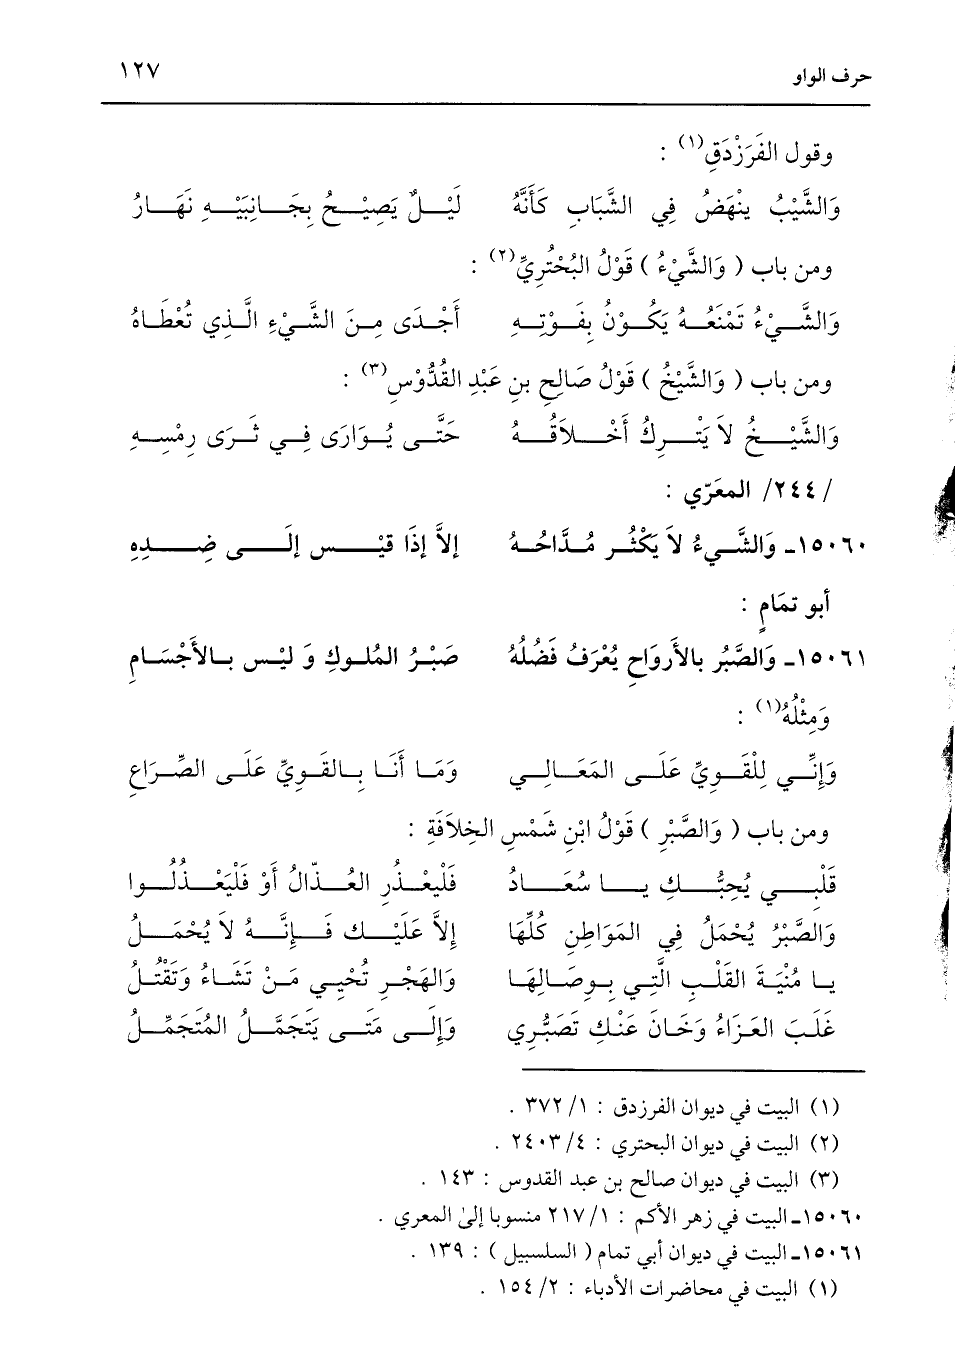 حرف الواو ١٢٧
وقول الفَرَزْدَقِ(١) :
وَالشَّيْبُ يَنْهَضُ فِي الشَّبَابِ كَأَنَّهُ لَيْلٌ يَصِيْحُ بِجَانِبَيْهِ نَهَارُ
ومن باب ( وَالشَّيْءُ ) قَوْلُ البُحْتُرِيِّ(٢) :
وَالشَّيْءُ تَمْنَعُهُ يَكُوْنُ بِفَوْتِهِ أَجْدَى مِنَ الشَّيْءِ الَّذِي تُعْطَاهُ
ومن باب ( وَالشَّيْخُ ) قَوْلُ صَالِحِ بنِ عَبْدِ القُدُّوْسِ(٣) :
وَالشَّيْخُ لاَ يَتْرِكُ أَخْلاَقُهُ حَتَّى يُوَارَى فِي ثَرَى رِمْسِهِ
/٢٤٤/ المعَرّي :
١٥٠٦٠ـ وَالشَّيءُ لاَ يَكْثُر مُدَّاحُهُ إلاَّ إذَا قيْس إلَى ضِدِهِ
أبو تمَامٍ :
١٥٠٦١ـ وَالصَّبْرُ بالأَروَاحِ يُعْرَفُ فَضْلُهُ صَبْرُ المُلوكِ وَ ليْس بالأَجْسَامِ
وَمِثْلُهُ(١) :
وَإِنِّي لِلْقَوِيِّ عَلَى المَعَالِي وَمَا أَنَا بِالقَوِيِّ عَلَى الصِّرَاعِ
ومن باب ( وَالصَّبْرِ ) قَوْلُ ابْنِ شَمْسِ الخِلاَفَةِ :
قَلْبِي يُحِبُّكِ يَا سُعَادُ فَلْيَعْذُرِ العُذّالُ أَوْ فَلْيَعْذُلُوا
وَالصَّبْرُ يُحْمَلُ فِي المَوَاطِنِ كُلِّهَا إِلاَّ عَلَيْكِ فَإِنَّهُ لاَ يُحْمَلُ
يا مُنْيَةَ القَلْبِ الَّتِي بِوِصَالِهَا وَالهَجْرِ تُحْيِي مَنْ تَشَاءُ وَتَقْتُلُ
غَلَبَ العَزَاءُ وَخَانَ عَنْكِ تَصَبُّرِي وَإِلَى مَتَى يَتَجَمَّلُ المُتَجَمِّلُ
(١) البيت في ديوان الفرزدق : ١/ ٣٧٢ .
(٢) البيت في ديوان البحتري : ٤/ ٢٤٠٣ .
(٣) البيت في ديوان صالح بن عبد القدوس : ١٤٣ .
١٥٠٦٠ـ البيت في زهر الأكم : ١/ ٢١٧ منسوبا إلى المعري .
١٥٠٦١ـ البيت في ديوان أبي تمام ( السلسبيل ) : ١٣٩ .
(١) البيت في محاضرات الأدباء : ٢/ ١٥٤ .